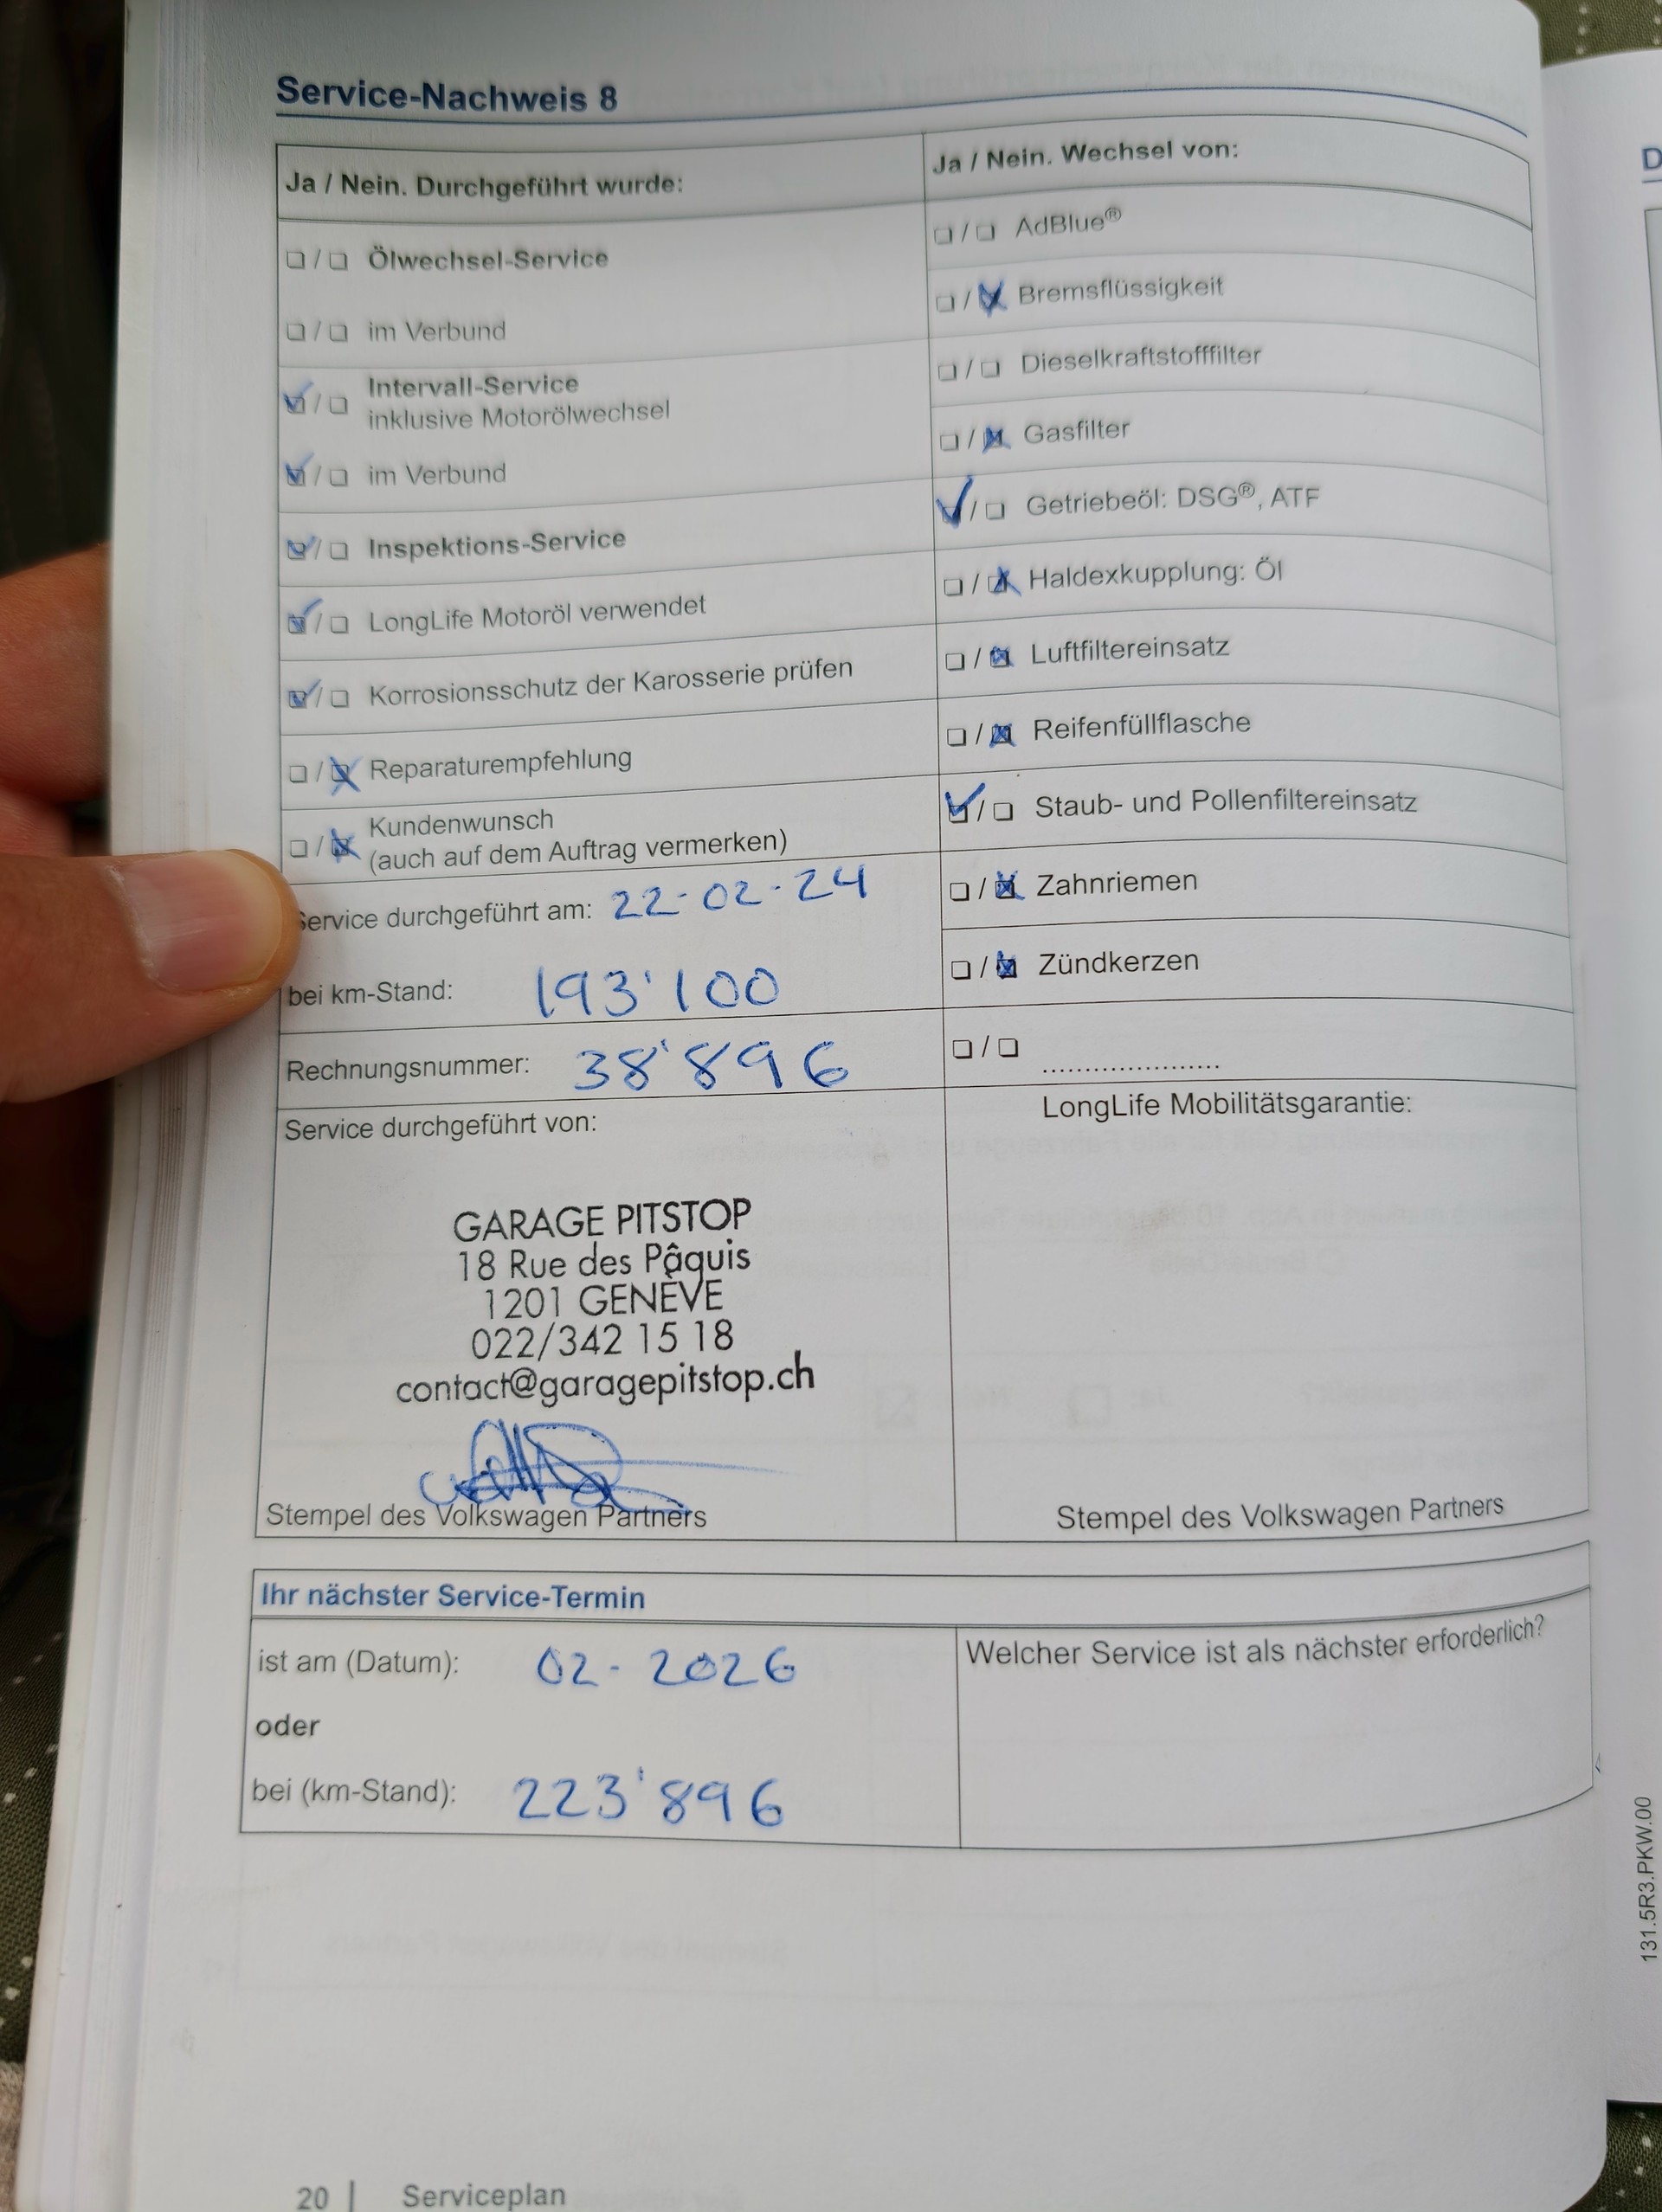 Service-Nachweis 8
Ja / Nein. Durchgeführt wurde:
❏ / ❏ Ölwechsel-Service
❏ / ❏ im Verbund
☑ / ❏ Intervall-Service
inklusive Motorölwechsel
☑ / ❏ im Verbund
☑ / ❏ Inspektions-Service
☑ / ❏ LongLife Motoröl verwendet
☑ / ❏ Korrosionsschutz der Karosserie prüfen
❏ / ☒ Reparaturempfehlung
❏ / ☒ Kundenwunsch
(auch auf dem Auftrag vermerken)
Service durchgeführt am: 22-02-24
bei km-Stand: 193'100
Rechnungsnummer: 38'896
Service durchgeführt von:
GARAGE PITSTOP
18 Rue des Pâquis
1201 GENÈVE
022/342 15 18
contact@garagepitstop.ch
Stempel des Volkswagen Partners
Ja / Nein. Wechsel von:
❏ / ❏ AdBlue®
❏ / ☒ Bremsflüssigkeit
❏ / ❏ Dieselkraftstofffilter
❏ / ☒ Gasfilter
☑ / ❏ Getriebeöl: DSG®, ATF
❏ / ☒ Haldexkupplung: Öl
❏ / ☒ Luftfiltereinsatz
❏ / ☒ Reifenfüllflasche
☑ / ❏ Staub- und Pollenfiltereinsatz
❏ / ☒ Zahnriemen
❏ / ☒ Zündkerzen
❏ / ❏ .....................
LongLife Mobilitätsgarantie:
Stempel des Volkswagen Partners
Ihr nächster Service-Termin
ist am (Datum): 02-2026
oder
bei (km-Stand): 223'896
Welcher Service ist als nächster erforderlich?
20 | Serviceplan
131.5R3.PKW.00
D